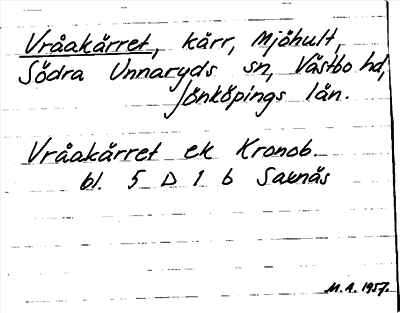 Vråakärret, kärr, Mjöhult,
Södra Unnaryds sn, Västbo hd,
Jönköpings län.
Vråakärret ek Kronob.
bl. 5 D 1 b Saxnäs
M. A. 1957.